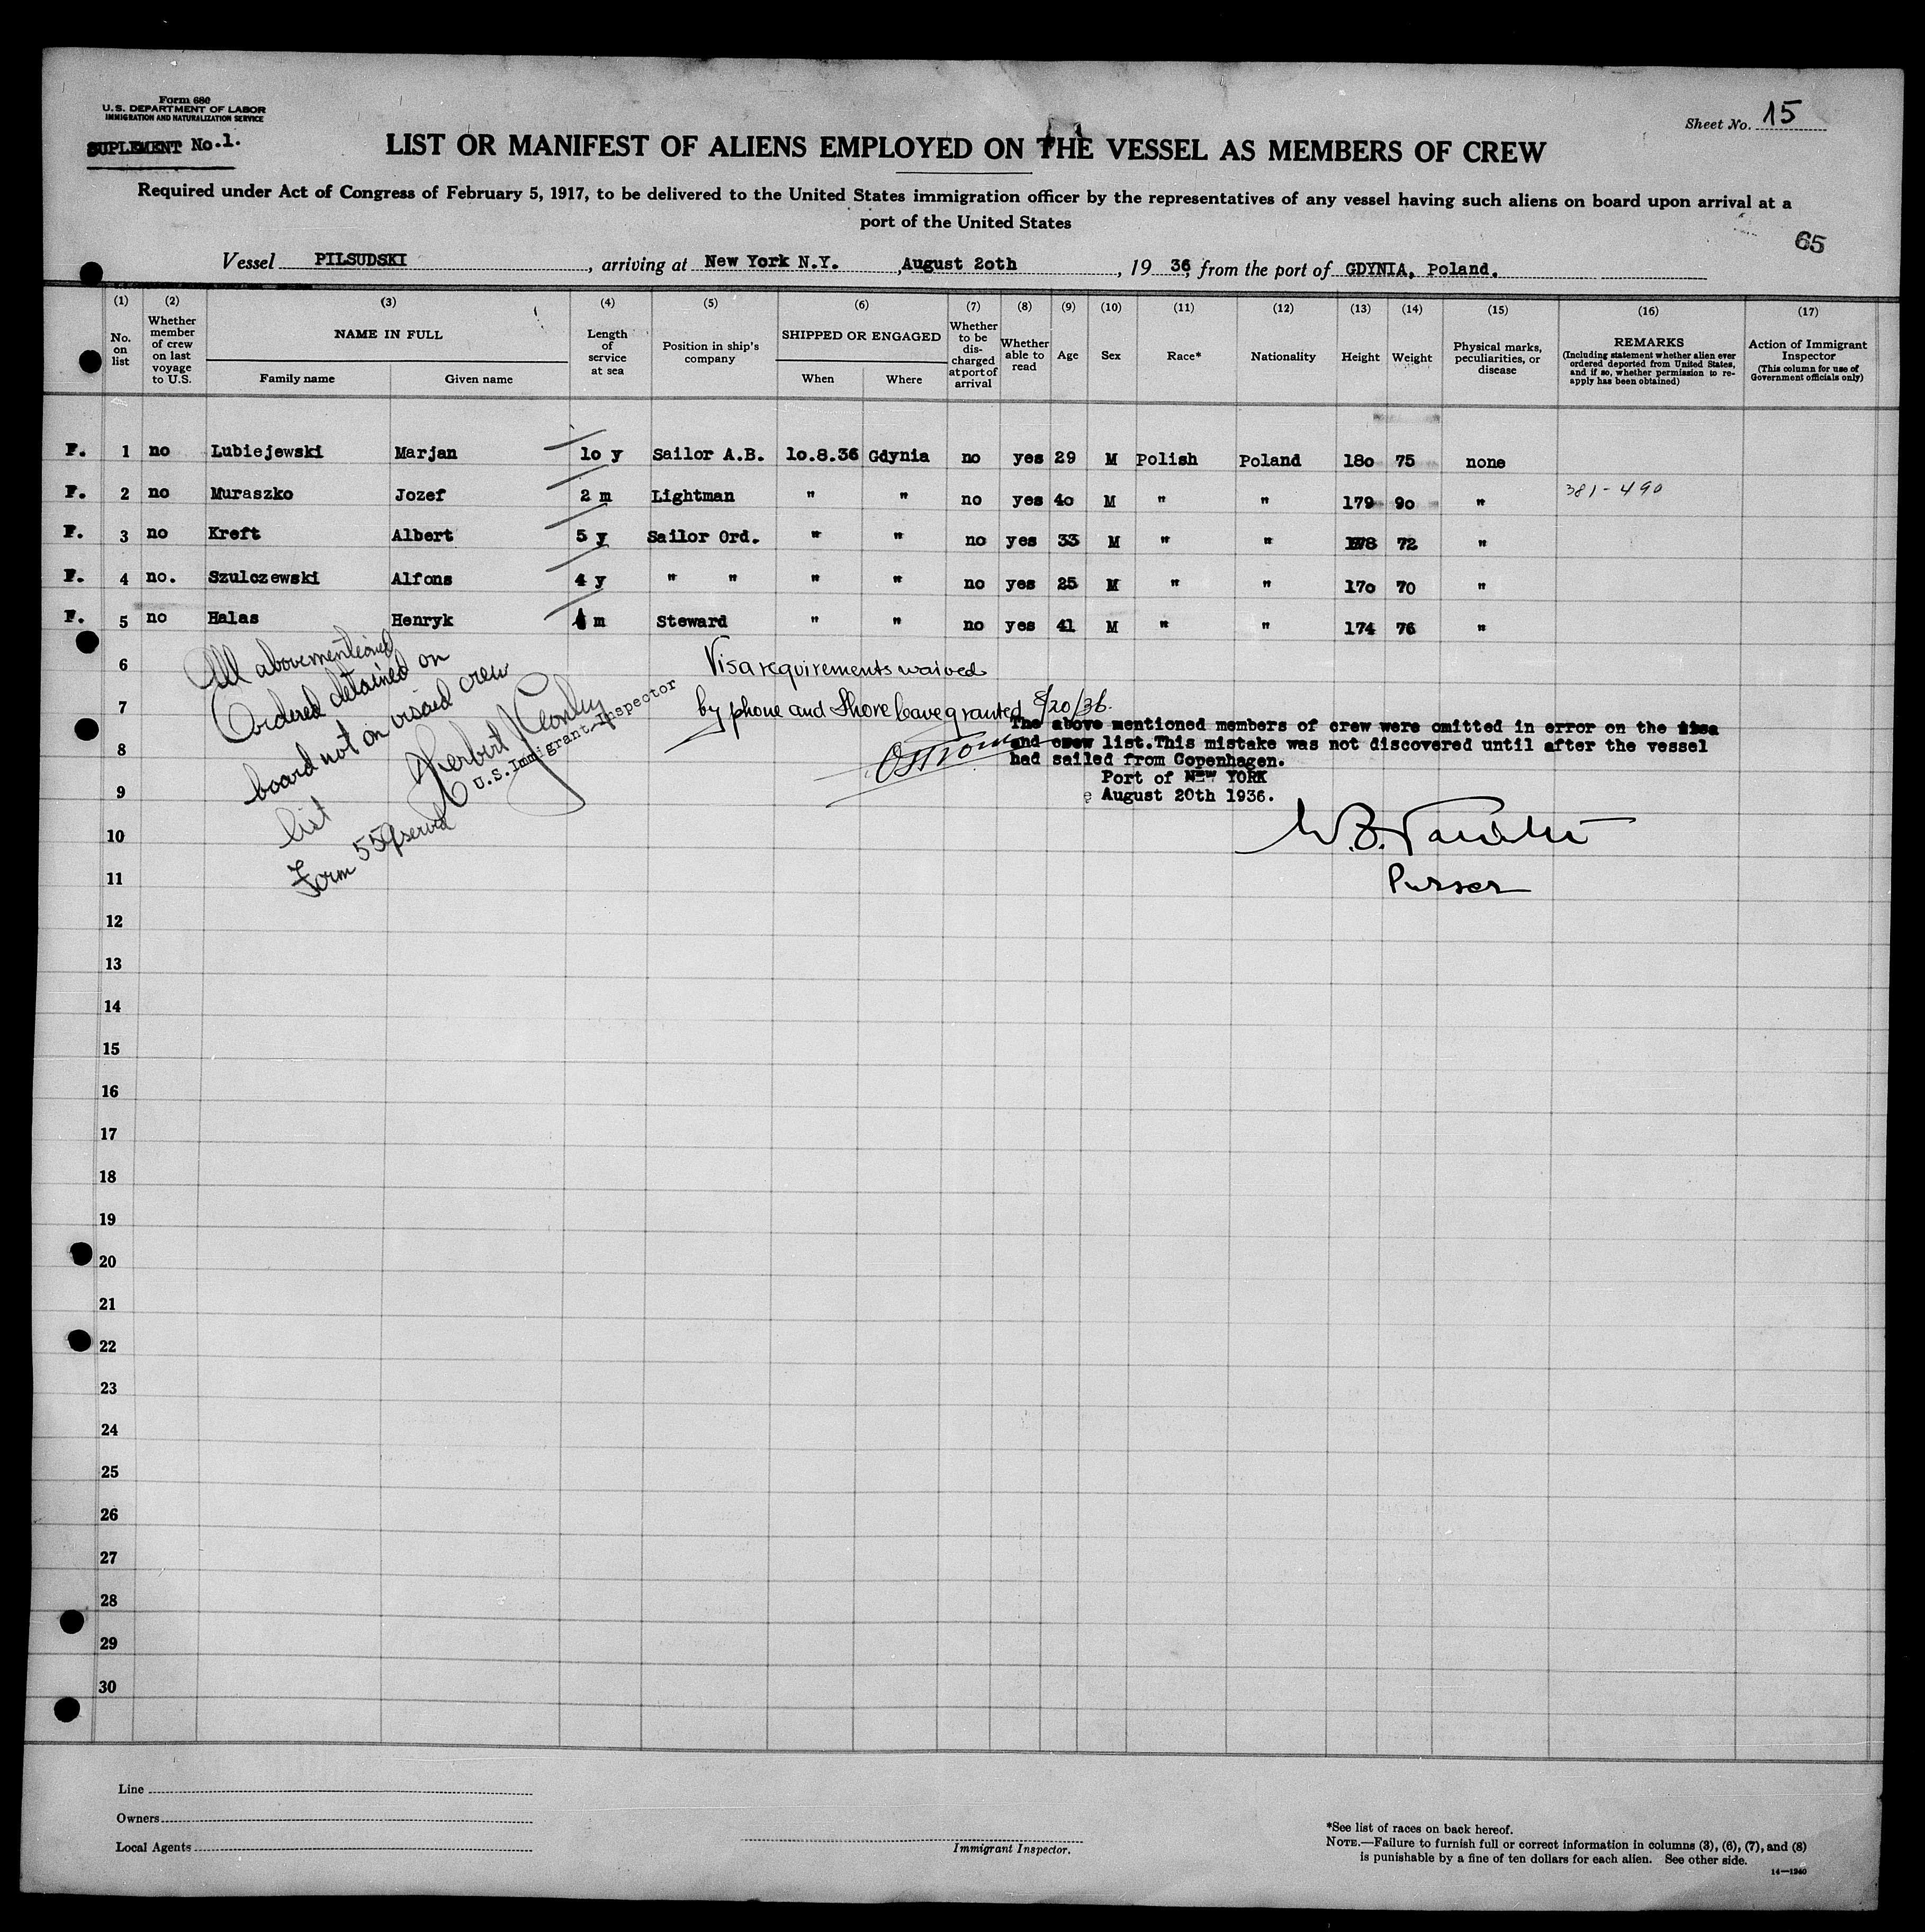 Form 680
U.S. DEPARTMENT OF LABOR
IMMIGRATION AND NATURALIZATION SERVICE
SUPLEMENT No.1.
Sheet No. 15
LIST OR MANIFEST OF ALIENS EMPLOYED ON THE VESSEL AS MEMBERS OF CREW
Required under Act of Congress of February 5, 1917, to be delivered to the United States immigration officer by the representatives of any vessel having such aliens on board upon arrival at a
port of the United States
65
Vessel PILSUDSKI, arriving at New York N.Y., August 2oth, 19 36, from the port of GDYNIA, Poland.
(1) (2) (3) (4) (5) (6) (7) (8) (9) (10) (11) (12) (13) (14) (15) (16) (17)
No. on list
Whether member of crew on last voyage to U.S.
NAME IN FULL
Family name Given name
Length of service at sea
Position in ship's company
SHIPPED OR ENGAGED
When Where
Whether to be discharged at port of arrival
Whether able to read
Age
Sex
Race*
Nationality
Height
Weight
Physical marks, peculiarities, or disease
REMARKS
(Including statement whether alien ever ordered deported from United States, and if so, whether permission to re-apply has been obtained)
Action of Immigrant Inspector
(This column for use of Government officials only)
F. 1 no Lubiejewski Marjan 1o y Sailor A.B. 1o.8.36 Gdynia no yes 29 M Polish Poland 18o 75 none
F. 2 no Muraszko Jozef 2 m Lightman " " no yes 4o M " " 179 9o " 381-490
F. 3 no Kreft Albert 5 y Sailor Ord. " " no yes 33 M " " 178 72 "
F. 4 no. Szulczewski Alfons 4 y " " " " no yes 25 M " " 17o 70 "
F. 5 no Halas Henryk m Steward " " no yes 41 M " " 174 76 "
6
7
8
9
10
11
12
13
14
15
16
17
18
19
20
21
22
23
24
25
26
27
28
29
30
All abovementioned
Ordered detained on
board not on visaed crew
list
Form 559 served
Herbert
U.S. Immigrant Inspector
Visa requirements waived
by phone and Shore leave granted 8/20/36.
The above mentioned members of crew were omitted in error on the visa
and crew list.This mistake was not discovered until after the vessel
had sailed from Copenhagen.
Port of NEW YORK
August 20th 1936.
Purser
Line
Owners
Local Agents
Immigrant Inspector.
*See list of races on back hereof.
NOTE.—Failure to furnish full or correct information in columns (3), (6), (7), and (8)
is punishable by a fine of ten dollars for each alien. See other side.
14—1240